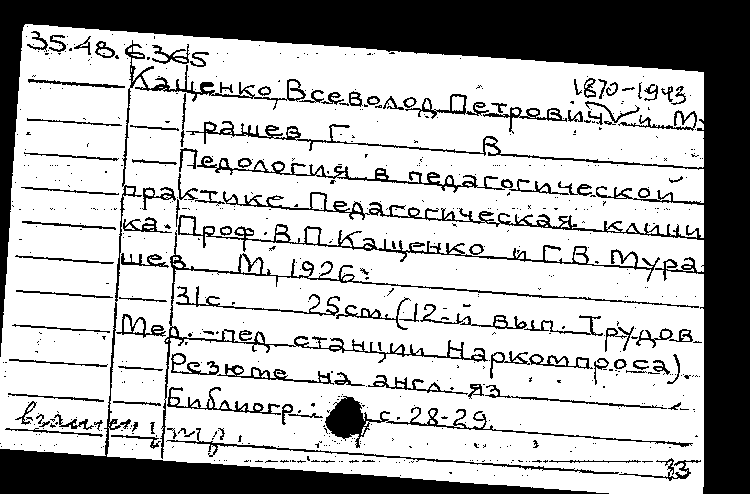 35.48.6.365
1870-1943
Кащенко, Всеволод Петрович и М.
рашев, Г. В
Педология в педагогической
практике. Педагогическая клини
ка. Проф. В.П. Кащенко и Г.В. Мура
шев. М., 1926.
31с. 25см. (12-й вып. Трудов
Мед.-пед станции Наркомпроса).
Резюме на англ. яз
Библиогр.: с. 28-29.
33